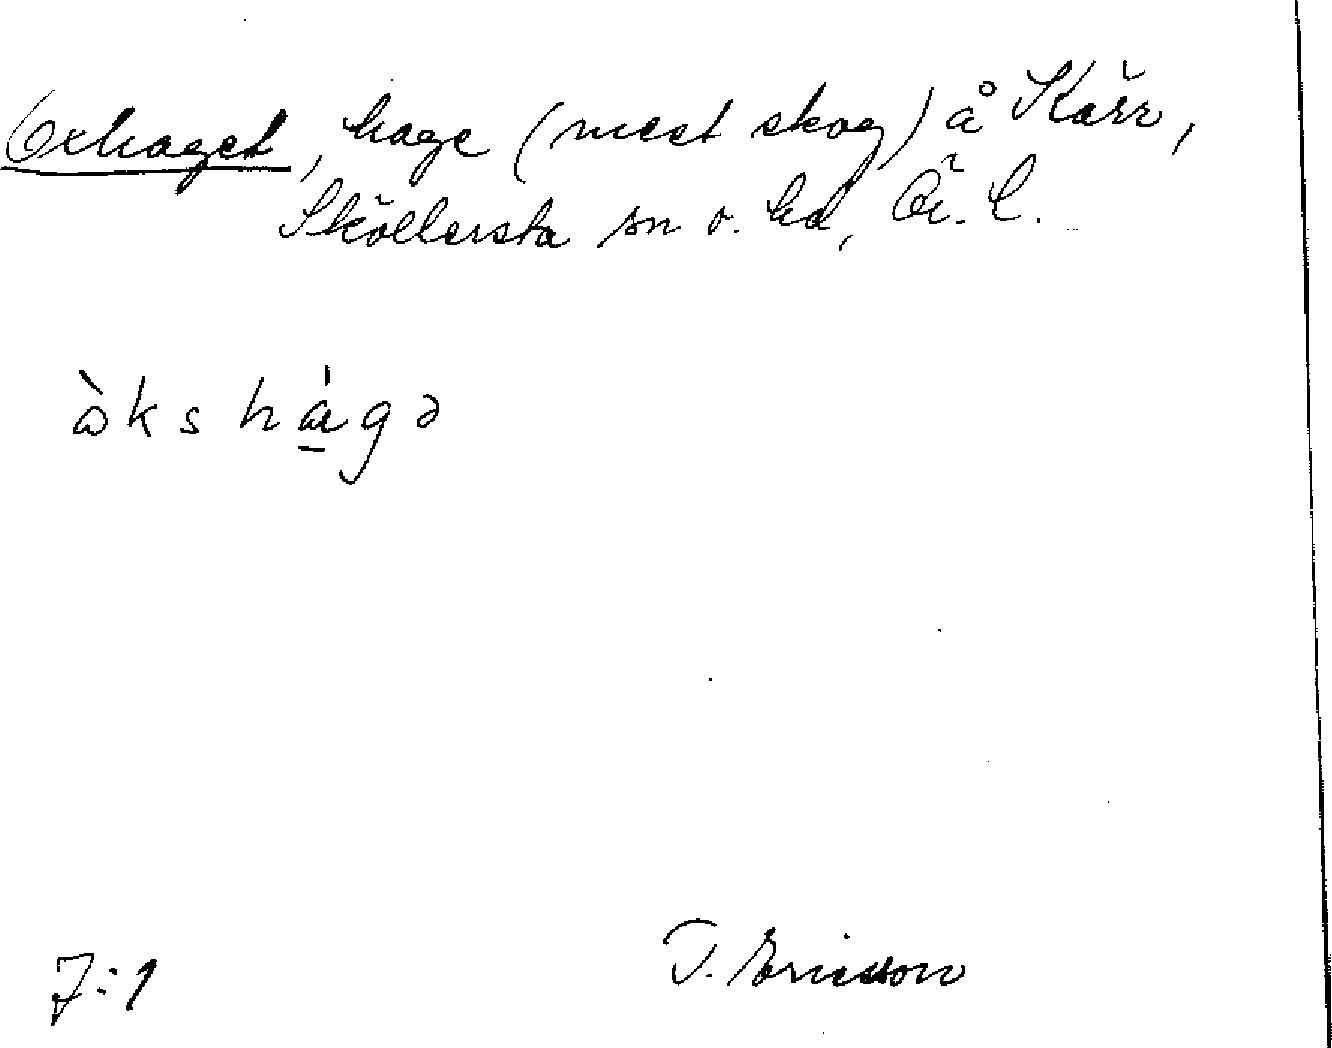 Oxhaget, hage (mest skog) å Kärr,
Sköllersta sn o. hd, Ör. l.
åkshágə
7:1
T. Ericsson